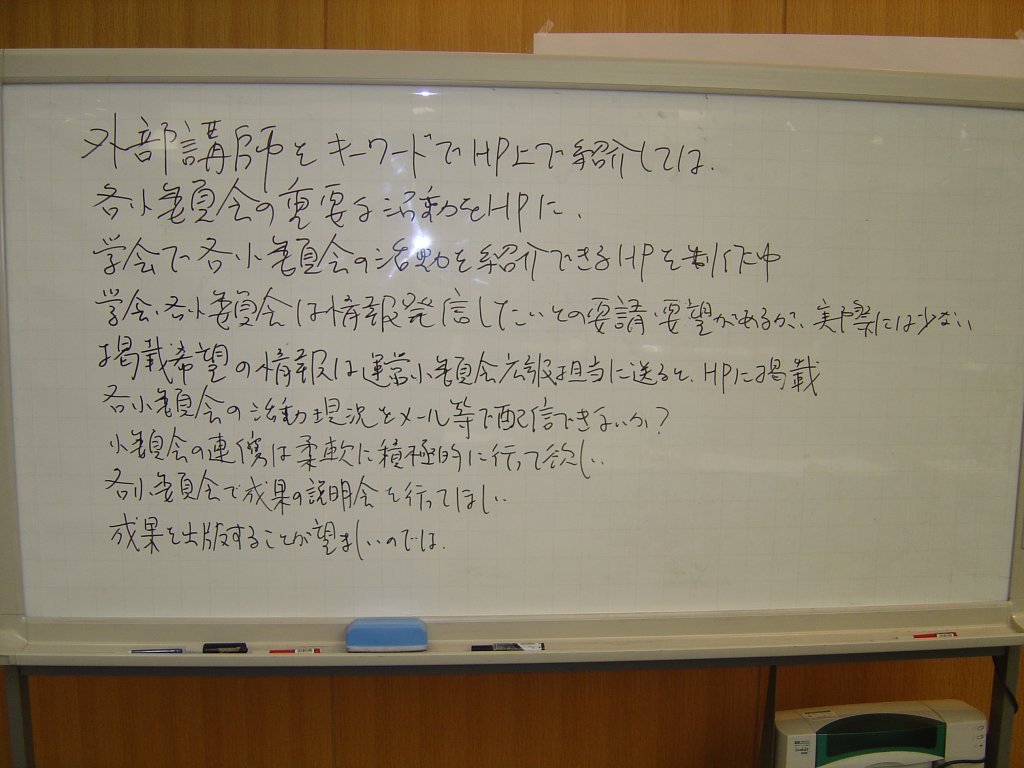 外部講師をキーワードでHP上で紹介しては.
各小委員会の重要な活動をHPに.
学会で各小委員会の活動を紹介できるHPを制作中
学会.各小委員会は情報発信したいとの要請.要望があるが、実際には少ない
掲載希望の情報は運営小委員会広報担当に送ると、HPに掲載
各小委員会の活動現況をメール等で配信できないか?
小委員会の連携は柔軟に積極的に行って欲しい.
各小委員会で成果の説明会を行ってほしい.
成果を出版することが望ましいのでは.